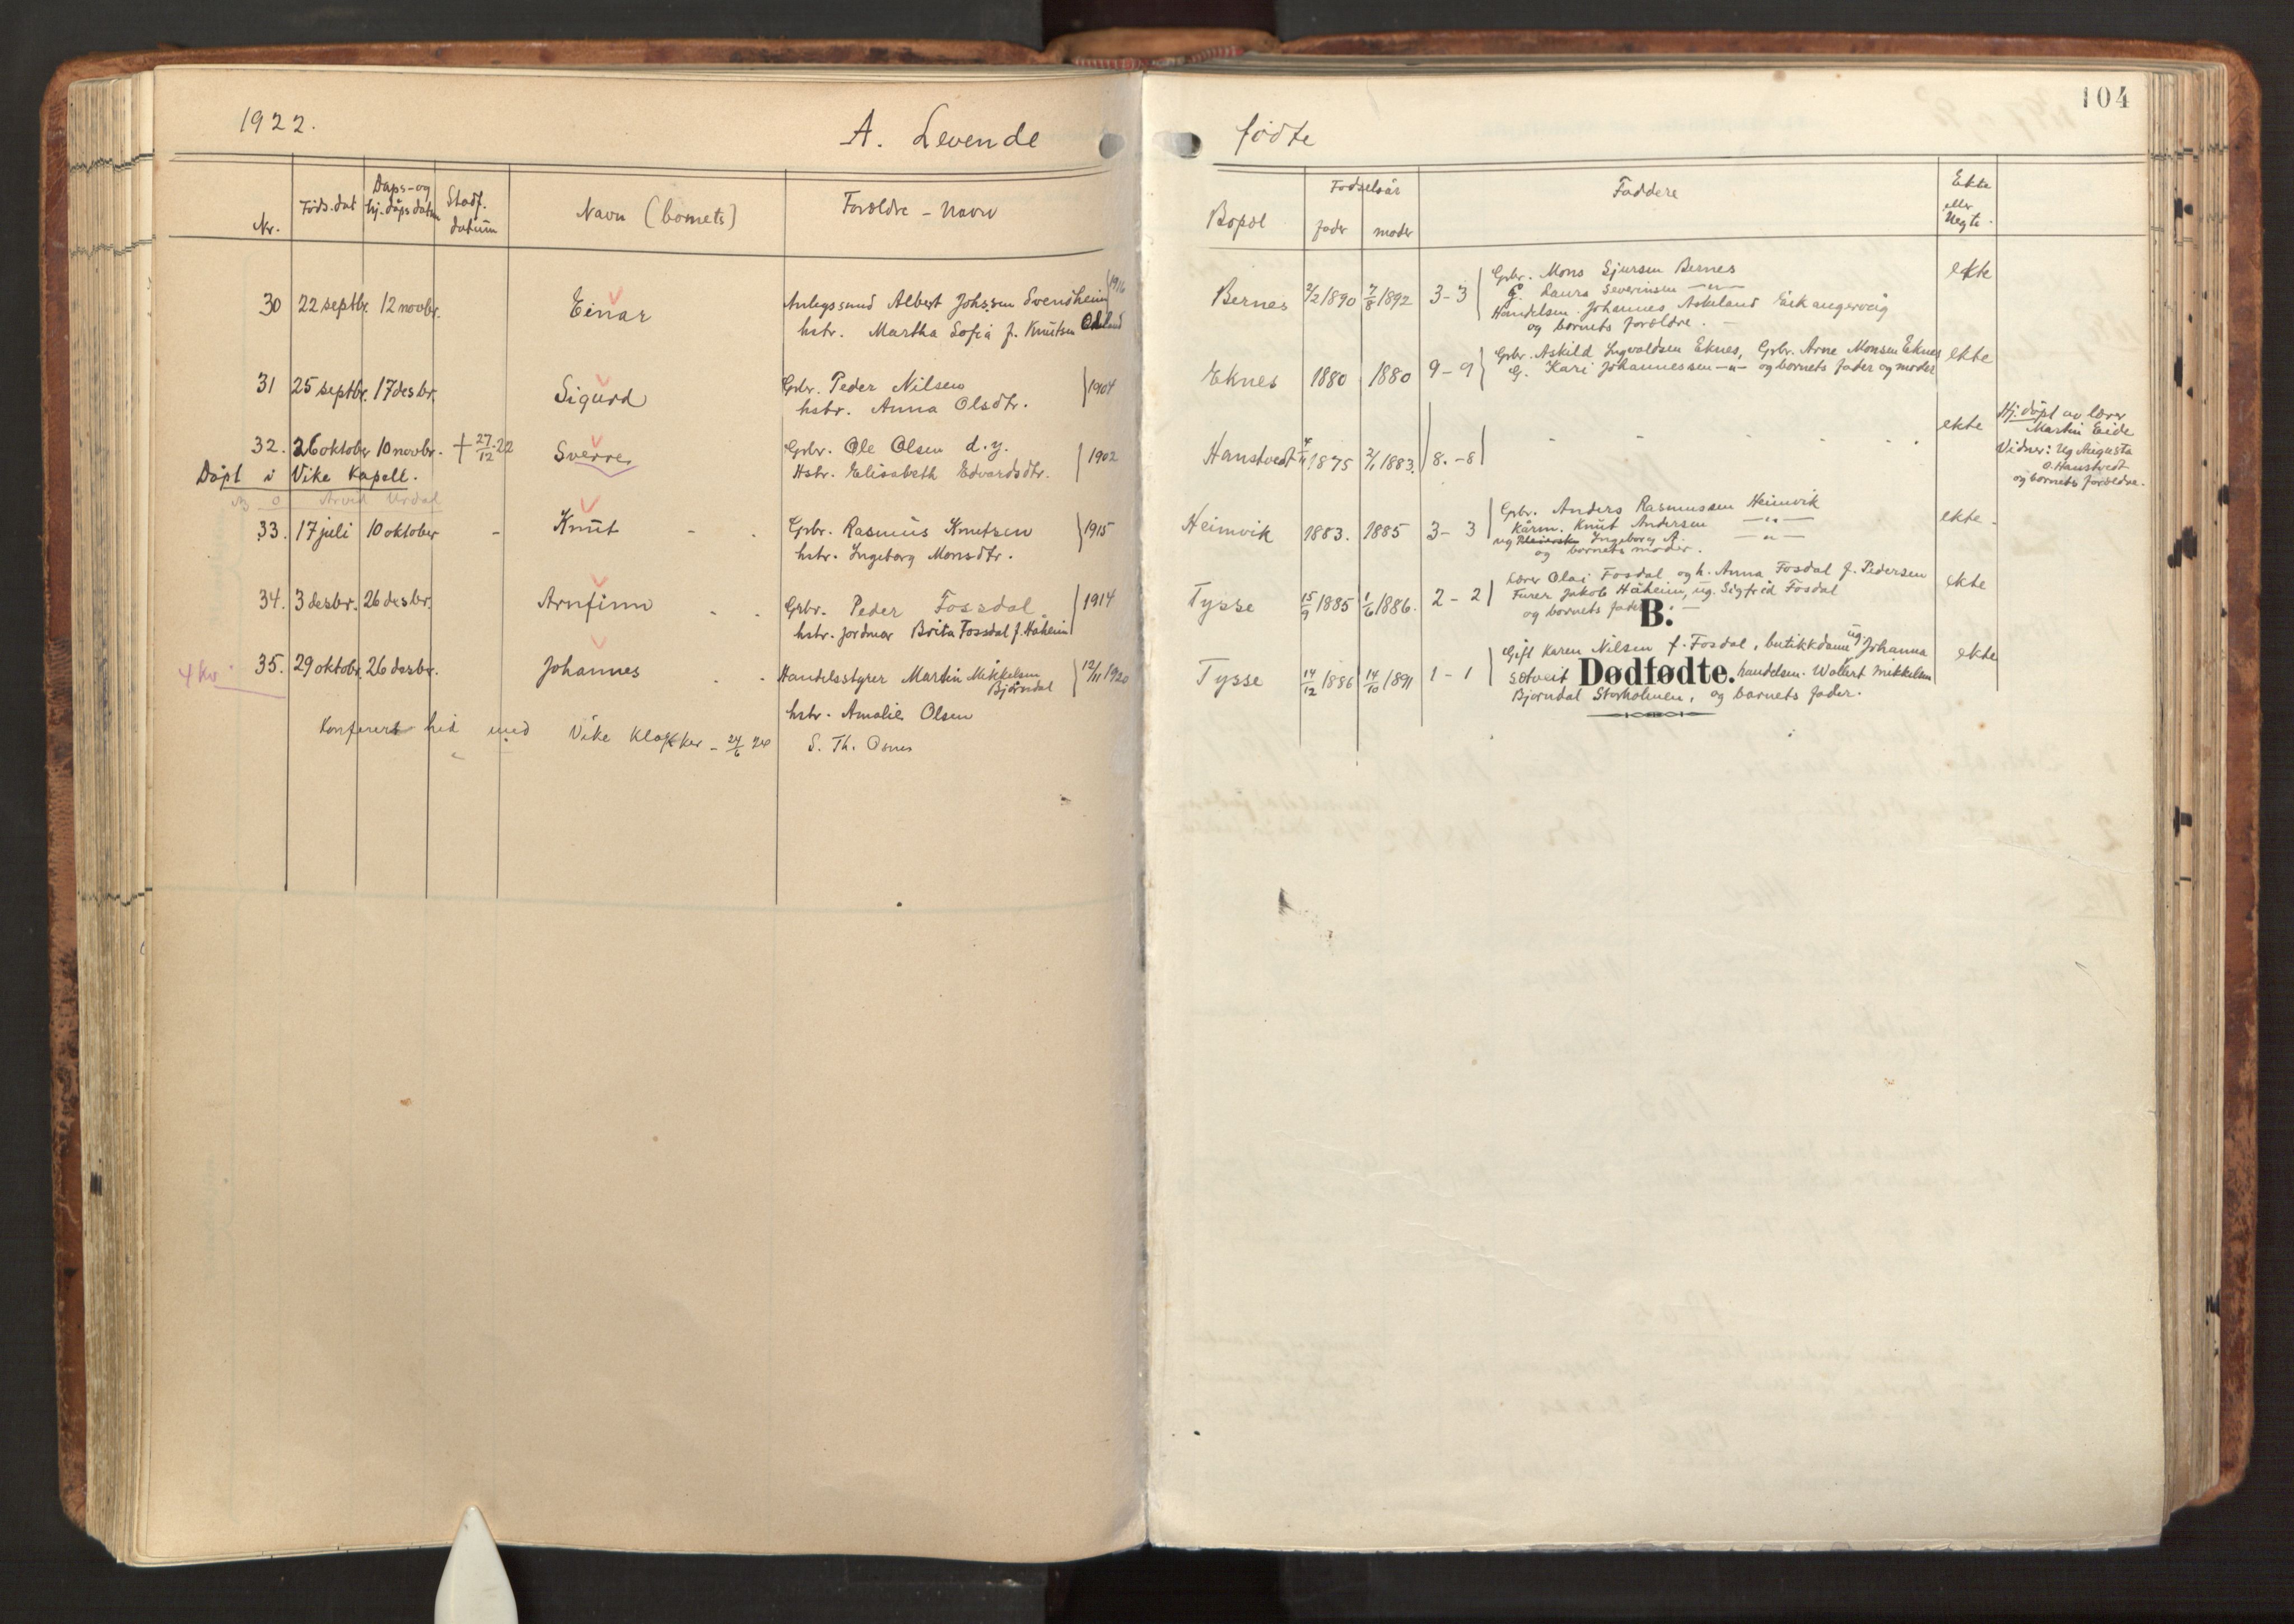 1922.
A. Levende
Nr.
Föds. dat
Daps- og
hj. dåps datum
Stadf.
datum
Navn (bornets)
Foreldre - Navn
30 22 septbr. 12 novbr.
Einar
Anlegssund Albert Johssen Svendheim
hstr. Martha Sofia f. Knutsen
1916
31 25 septbr. 17 desbr.
Sigurd
Grbr. Peder Nilsen
hstr. Anna Olsdtr.
1904
32. 26 oktober 10 novbr. † 27/12 22
Sverre
Grbr. Ole Olsen d.y.
Hstr. Elisabeth Edvardsdtr.
1902
Döpt i Vike Kapell.
Arvid Urdal
33. 17 juli 10 oktober -
Knut
Grbr. Rasmus Knutsen
hstr. Ingeborg Monsdtr.
1915
34. 3 desbr. 26 desbr.
Arnfinn
Grbr. Peder Fossdal
hstr. jordmor Brita Fossdal f. Håheim
1914
4 kv.
35. 29 oktobr. 26 desbr.
Johannes
Handelsstyrer Martin Mikkelsen
Bjørndal
hstr. Amalie Olsen
12/11 1920
Konferert hid med Vike klokker - 24/6 24 S. Th. Osnes
104
fødte
Bopel
Fødselsår
fader
moder
Faddere
Ekte
eller
Uegte.
Bernes 2/2 1890 7/8 1892 3-3
Grbr. Mons Sjursen Bernes
G. Laura Severinsen -"-
Handelsm. Johannes Askeland Eikangervåg
og bornets foreldre.
ekte
Eknes 1880 1880 9-9
Grbr. Askild Ingvaldsen Eknes, Grbr. Arne Monsen Eknes
G. Kari Johannessen -"- og bornets fader og moder
ekte
Hanstvedt 4/11 1875 2/1 1883. 8.-8
ekte
Hj. döpt av lærer
Martin Eide
Vidner: Ug Augusta
O. Hanstvedt
og bornets foreldre.
Heimvik 1883. 1885 3-3
Grbr. Anders Rasmussen Heimvik
Kårm. Knut Andersen -"-
ug Ingeborg A. -"-
og bornets moder.
ekte.
Tysse 15/9 1885 1/6 1886. 2-2
Lærer Olai Fosdal og h. Anna Fosdal f. Pedersen
Furer Jakob Håheim, ug. Sigfrid Fosdal
og bornets fader.
ekte
B.
Dødfødte.
Tysse 14/12 1886 14/10 1891 1-1
Gift Karen Nilsen f. Fosdal, butikkdame ug. Johanna
Sætveit handelsm. Wollert Mikkelsen
Bjørndal Storholmen, og barnets fader.
ekte